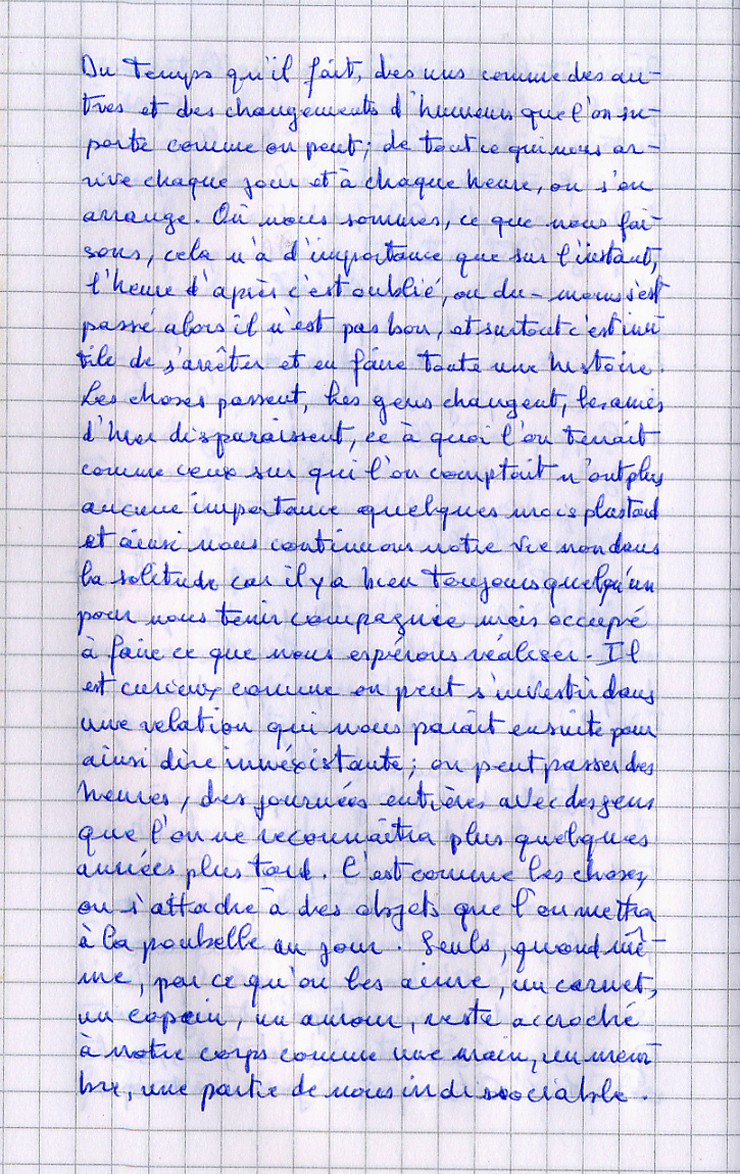 Du temps qu'il fait, des uns comme des au-
tres et des changements d'humeurs que l'on su-
porte comme on peut; de tout ce qui nous ar-
rive chaque jour et à chaque heure, on s'en
arrange. Où nous sommes, ce que nous fai-
sons, cela n'a d'importance que sur l'instant,
l'heure d'après c'est oublié, ou du-moins s'est
passé alors il n'est pas bon, et surtout c'est inu
tile de s'arrêter et en faire toute une histoire.
Les choses passent, les gens changent, les amis
d'hier disparaissent, ce à quoi l'on tenait
comme ceux sur qui l'on comptait n'ont plus
aucune importance quelques mois plus tard
et ainsi nous continuons notre vie non dans
la solitude car il y a bien toujours quelqu'un
pour nous tenir compagnie mais occupé
à faire ce que nous espérons réaliser. Il
est curieux comme on peut s'investir dans
une relation qui nous paraît ensuite pour
ainsi dire innéxistante; on peut passer des
heures, des journées entières avec des gens
que l'on ne reconnaîtra plus quelques
années plus tard. C'est comme les choses,
on s'attache à des objets que l'on mettra
à la poubelle un jour. Seuls, quand mê-
me, par ce qu'on les aime, un carnet,
un copain, un amour, reste accroché
à notre corps comme une main, un mem
bre, une partie de nous indissociable.